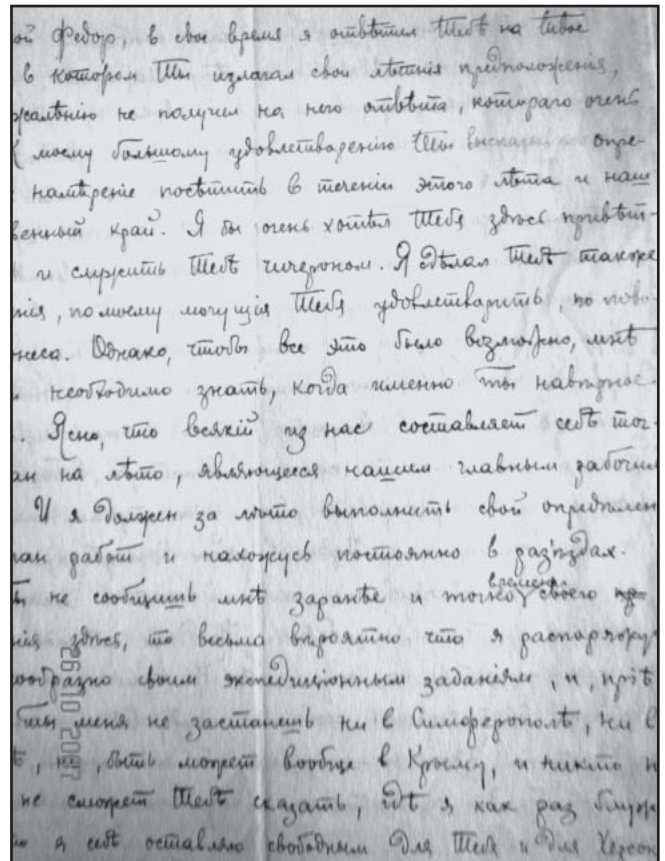 ой Федор, в свое время я отвѣтил Тебѣ на Твое
в котором Ты излагал свои лѣтнія предположенія,
жалѣнію не получил на него отвѣта, котораго очень
К моему большому удовлетворенію Ты высказал опре-
намѣреніе посѣтить в теченіи этого лѣта и наш
венный край. Я бы очень хотѣл Тебя здѣсь привѣт-
и служить Тебѣ чичероном. Я сдѣлал Тебѣ также
нія, по моему могущія Тебя удовлетварить, по пово-
неса. Однако, чтобы все это было возможно, мнѣ
необходимо знать, когда именно ты навѣрное
. Ясно, что всякій из нас составляет себѣ точ-
ан на лѣто, являющееся нашим главным рабочим
И я должен за лѣто выполнить свой опредѣлен
лан работ и нахожусь постоянно в раз'ѣздах.
не сообщишь мнѣ заранѣе и точно времени своего
нія здѣсь, то весьма вѣроятно что я распоряжу
ообразно своим экспедиціонным заданіям, и, пріѣ
ты меня не застанешь ни в Симферополѣ, ни в
ѣ, ни, быть может вообще в Крыму, и никто н
не сможет Тебѣ сказать, гдѣ я как раз блуж
я себѣ оставляю свободным для Тебя и для Херсон
26 10 2007